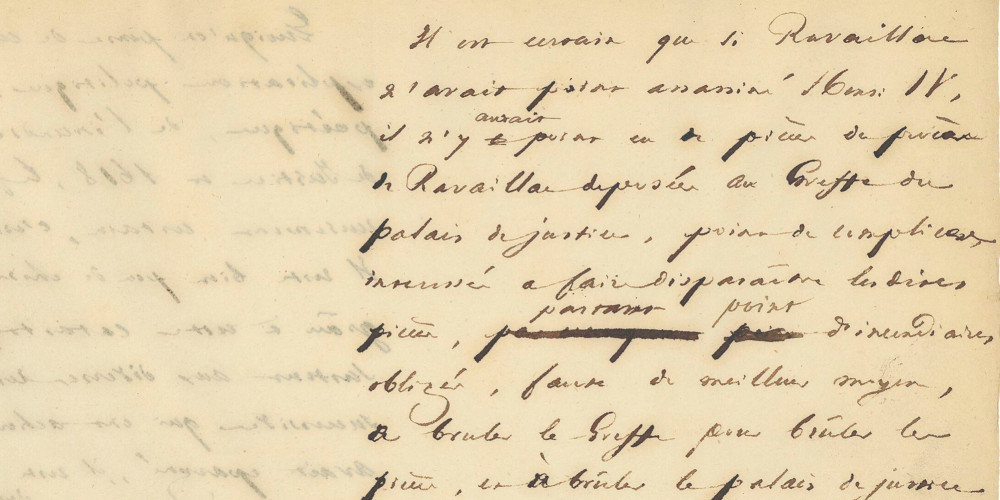 Il est certain que si Ravaillac
n'avait point assassiné Henri IV,
il n'y aurait point eu de pièces du procès
de Ravaillac déposées au Greffe du
palais de justice, point de complices
intéressés a faire disparaître les dites
pièces, partant point d'incendiaires
obligés, faute de meilleur moyen,
a bruler le Greffe pour brûler les
pièces, et à brûler le palais de justice